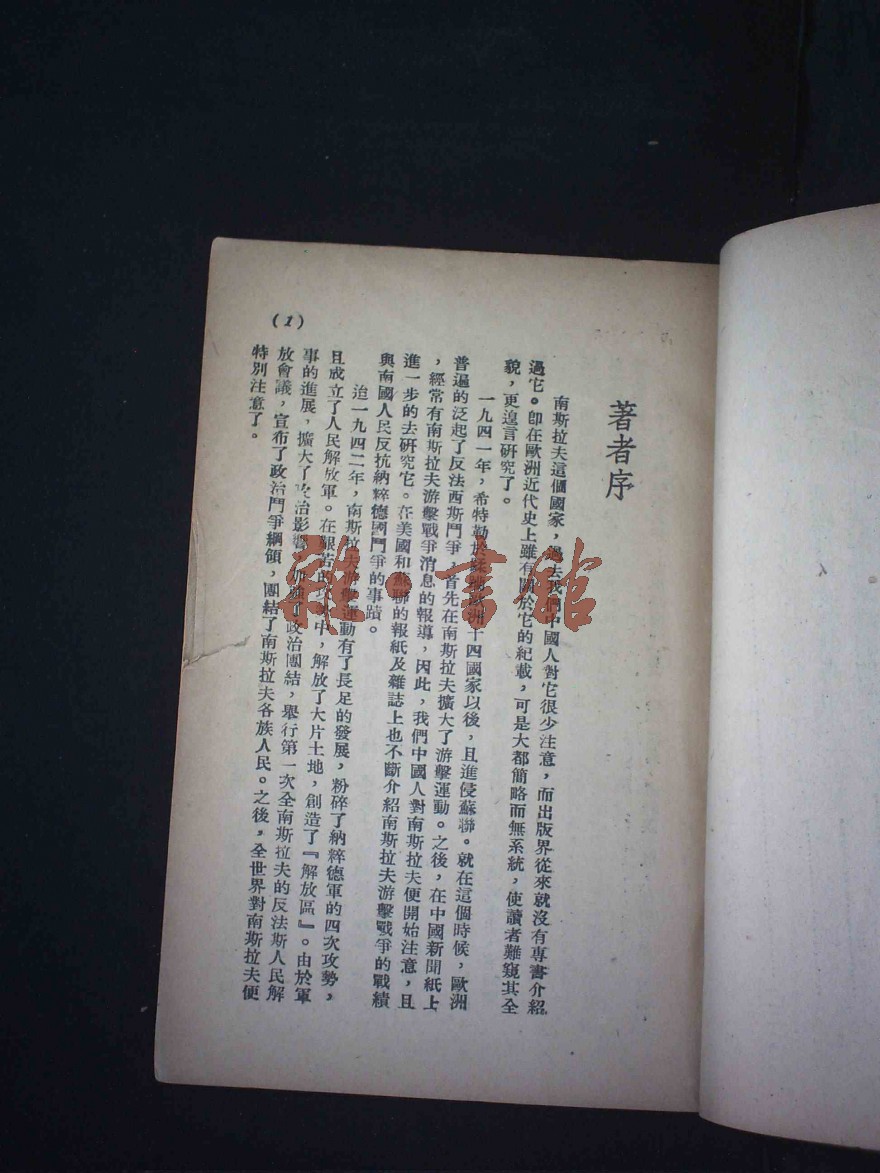 著者序
南斯拉夫這個國家，過去我們中國人對它很少注意，而出版界從來就沒有專書介紹
過它。卽在歐洲近代史上雖有關於它的紀載，可是大都簡略而無系統，使讀者難窺其全
貌，更遑言研究了。
一九四一年，希特勒於蹂躪歐洲十四國家以後，且進侵蘇聯。就在這個時候，歐洲
普遍的泛起了反法西斯鬥爭，首先在南斯拉夫擴大了游擊運動。之後，在中國新聞紙上
，經常有南斯拉夫游擊戰爭消息的報導，因此，我們中國人對南斯拉夫便開始注意，且
進一步的去研究它。在美國和蘇聯的報紙及雜誌上也不斷介紹南斯拉夫游擊戰爭的戰績
與南國人民反抗納粹德國鬥爭的事蹟。
迨一九四二年，南斯拉夫游擊運動有了長足的發展，粉碎了納粹德軍的四次攻勢，
且成立了人民解放軍。在艱苦的中，解放了大片土地，創造了『解放區』。由於軍
事的進展，擴大了政治影響，加強了政治團結，舉行第一次全南斯拉夫的反法斯人民解
放會議，宣布了政治鬥爭綱領，團結了南斯拉夫各族人民。之後，全世界對南斯拉夫便
特別注意了。
(1)
雜·書館